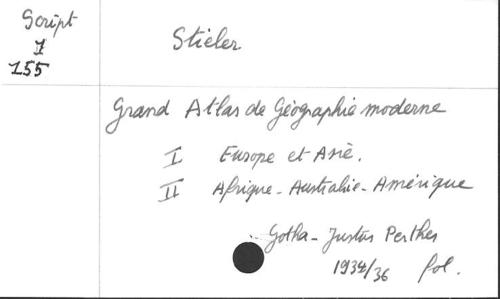 Script
1
155
Stieler
Grand Atlas de Géographie moderne
I Europe et Asie.
II Afrique - Australie - Amérique
Gotha - Justus Perthes
1934/36 fol.